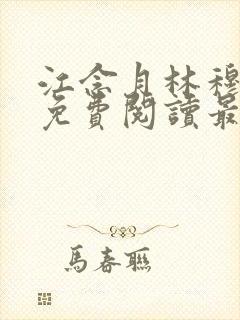 江念月林穆
免費閱讀最
馬春聯